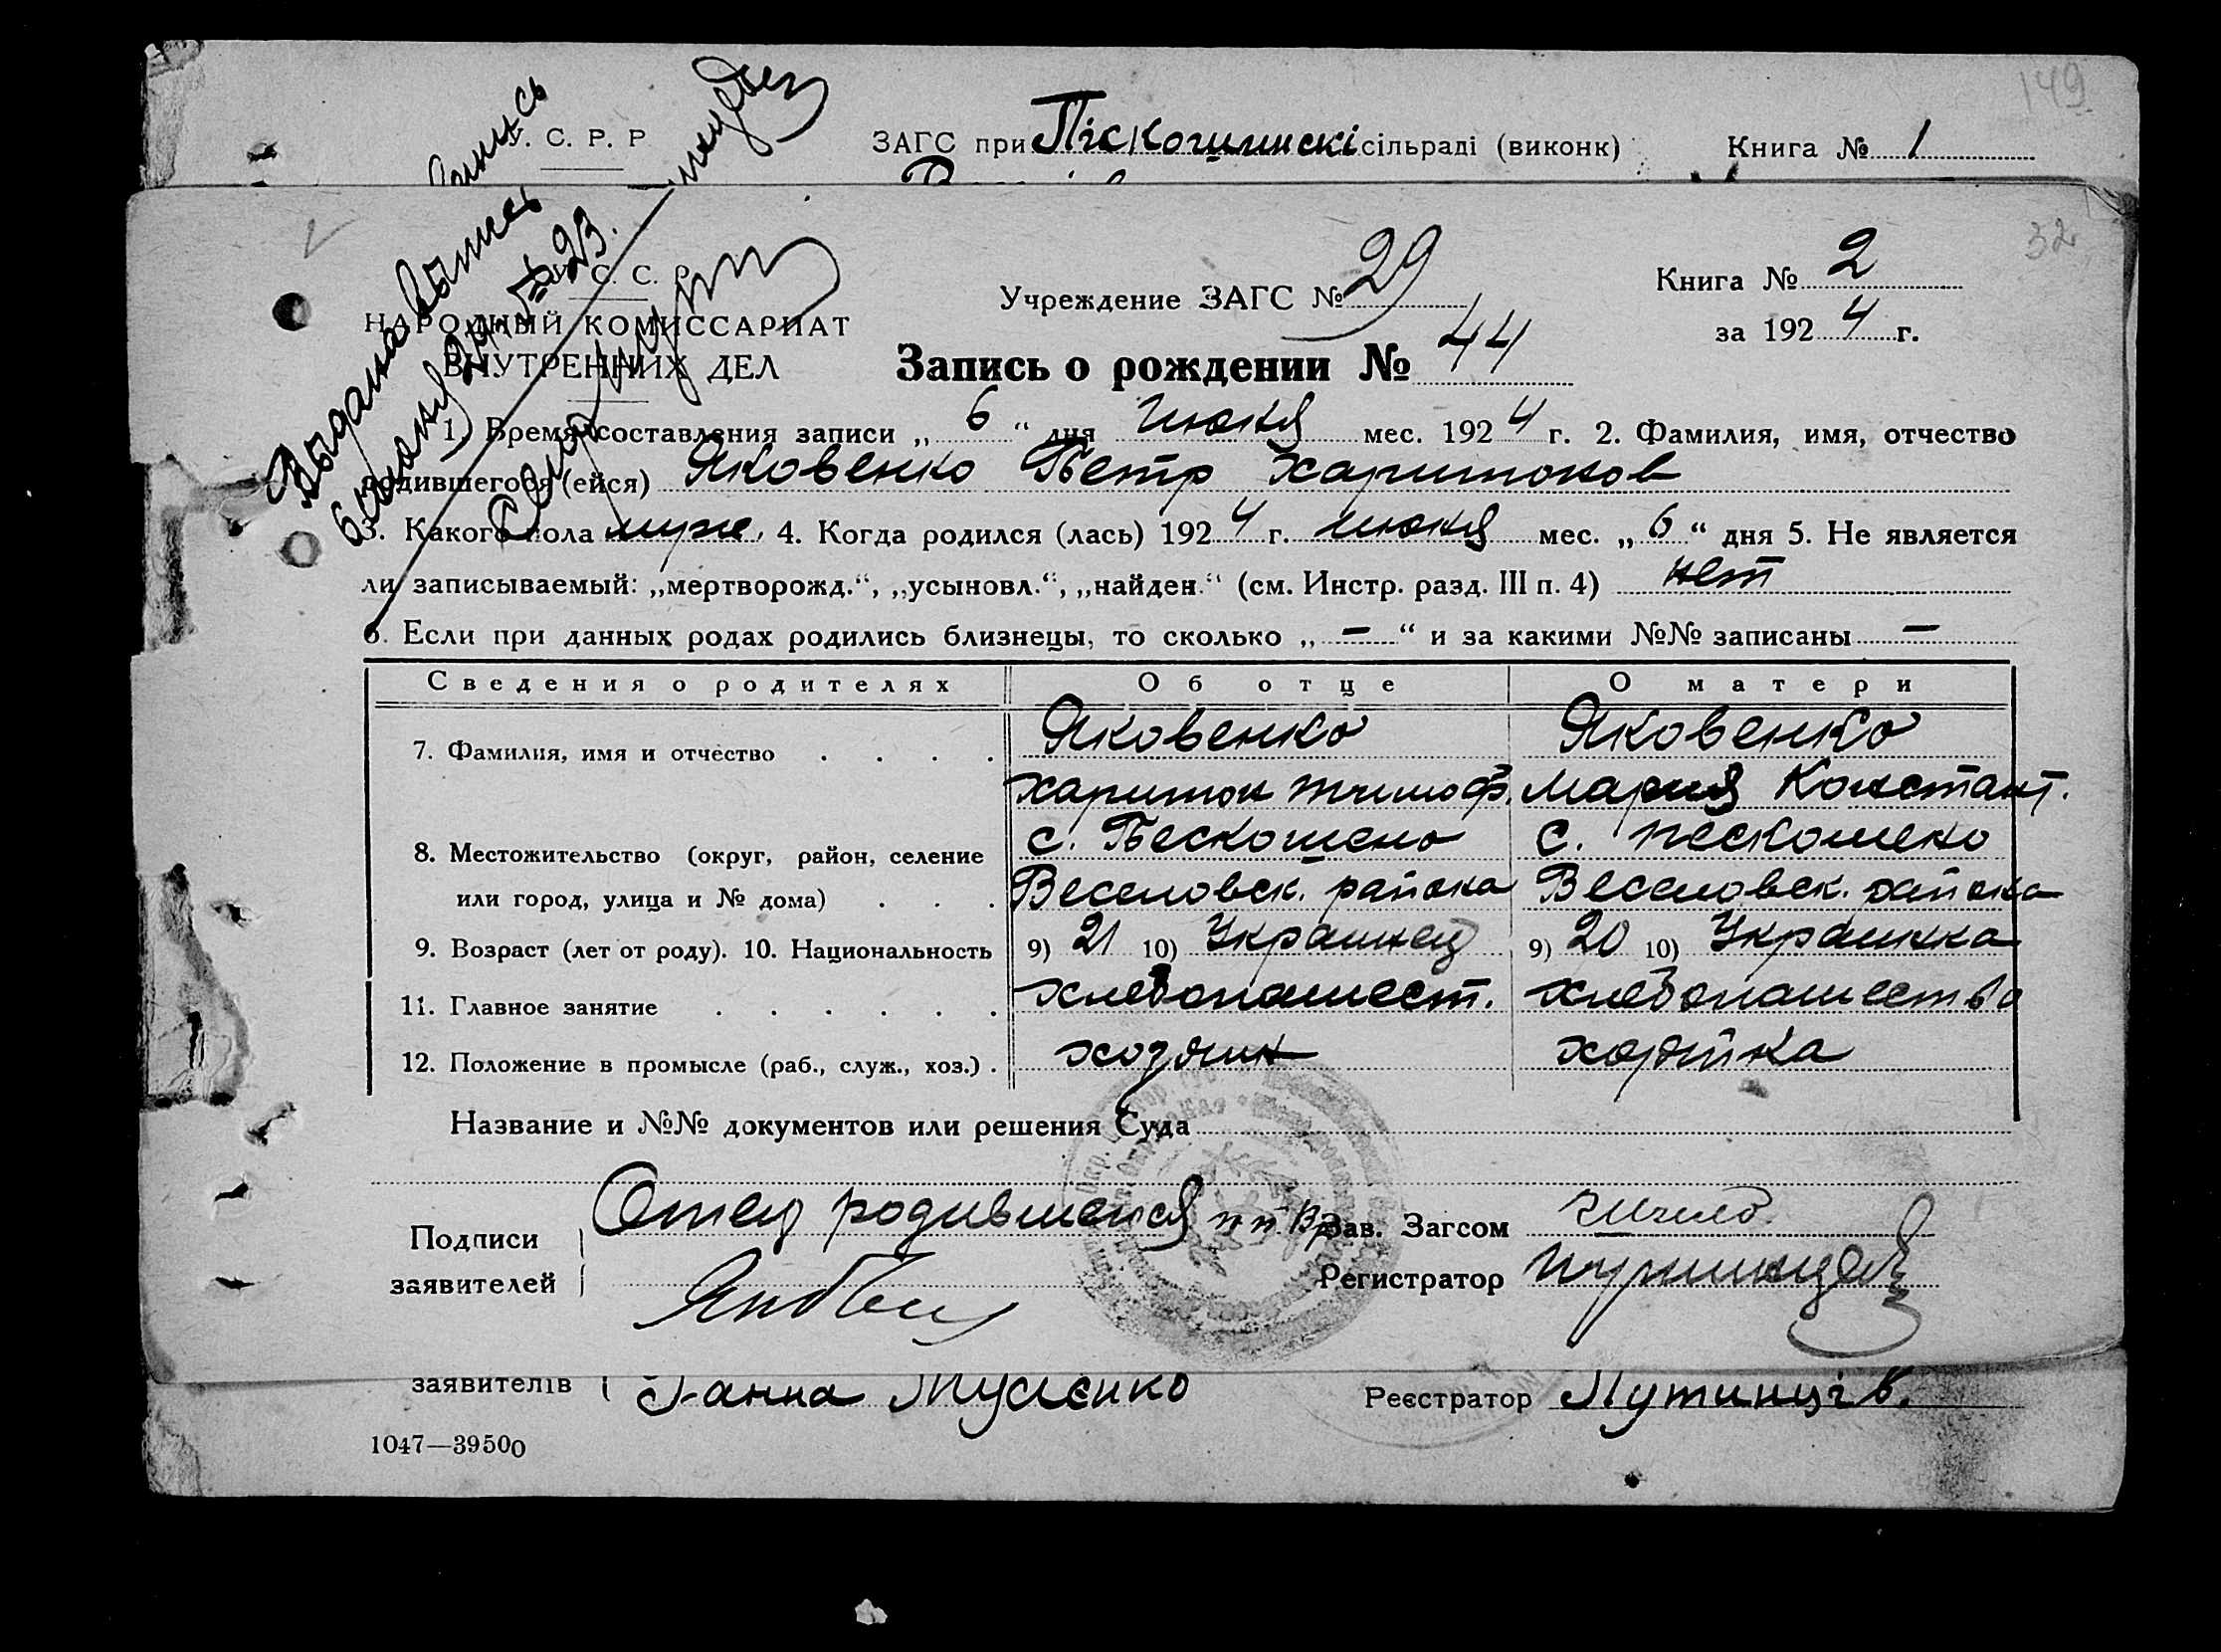 149
С. Р. Р
ЗАГС при Піскошинскі сільраді (виконк)
Книга № 1
32
С. С. Р.
НАРОДНЫЙ КОМИССАРИАТ
ВНУТРЕННИХ ДЕЛ
Выдана выпись
Учреждение ЗАГС № 29
Книга № 2
за 192 4 г.
Запись о рождении № 44
1. Время составления записи „ 6 “ дня Июля мес. 192 4 г. 2. Фамилия, имя, отчество
родившегося (ейся) Яковенко Петр Харитонов
3. Какого пола муж. 4. Когда родился (лась) 192 4 г. июля мес. „ 6 “ дня 5. Не является
ли записываемый: „мертворожд.“, „усыновл.“, „найден.“ (см. Инстр. разд. III п. 4) нет
6. Если при данных родах родились близнецы, то сколько „ — “ и за какими №№ записаны —
Сведения о родителях Об отце О матери
7. Фамилия, имя и отчество . . . . Яковенко Яковенко
Харитон Тимоф. Мария Констант.
8. Местожительство (округ, район, селение с. Пескошено с. Пескошено
или город, улица и № дома) . . . Веселовск. района Веселовск. района
9. Возраст (лет от роду). 10. Национальность 9) 21 10) Украинец 9) 20 10) Украинка
11. Главное занятие . . . . . . хлебопашест. хлебопашества
12. Положение в промысле (раб., служ., хоз.) . хозяин хозяйка
Название и №№ документов или решения Суда
Подписи
заявителей
Отец родившегося
Зав. Загсом
Регистратор
заявителів
Ганна Мусієнко
Реєстратор Путинців.
1047—39500